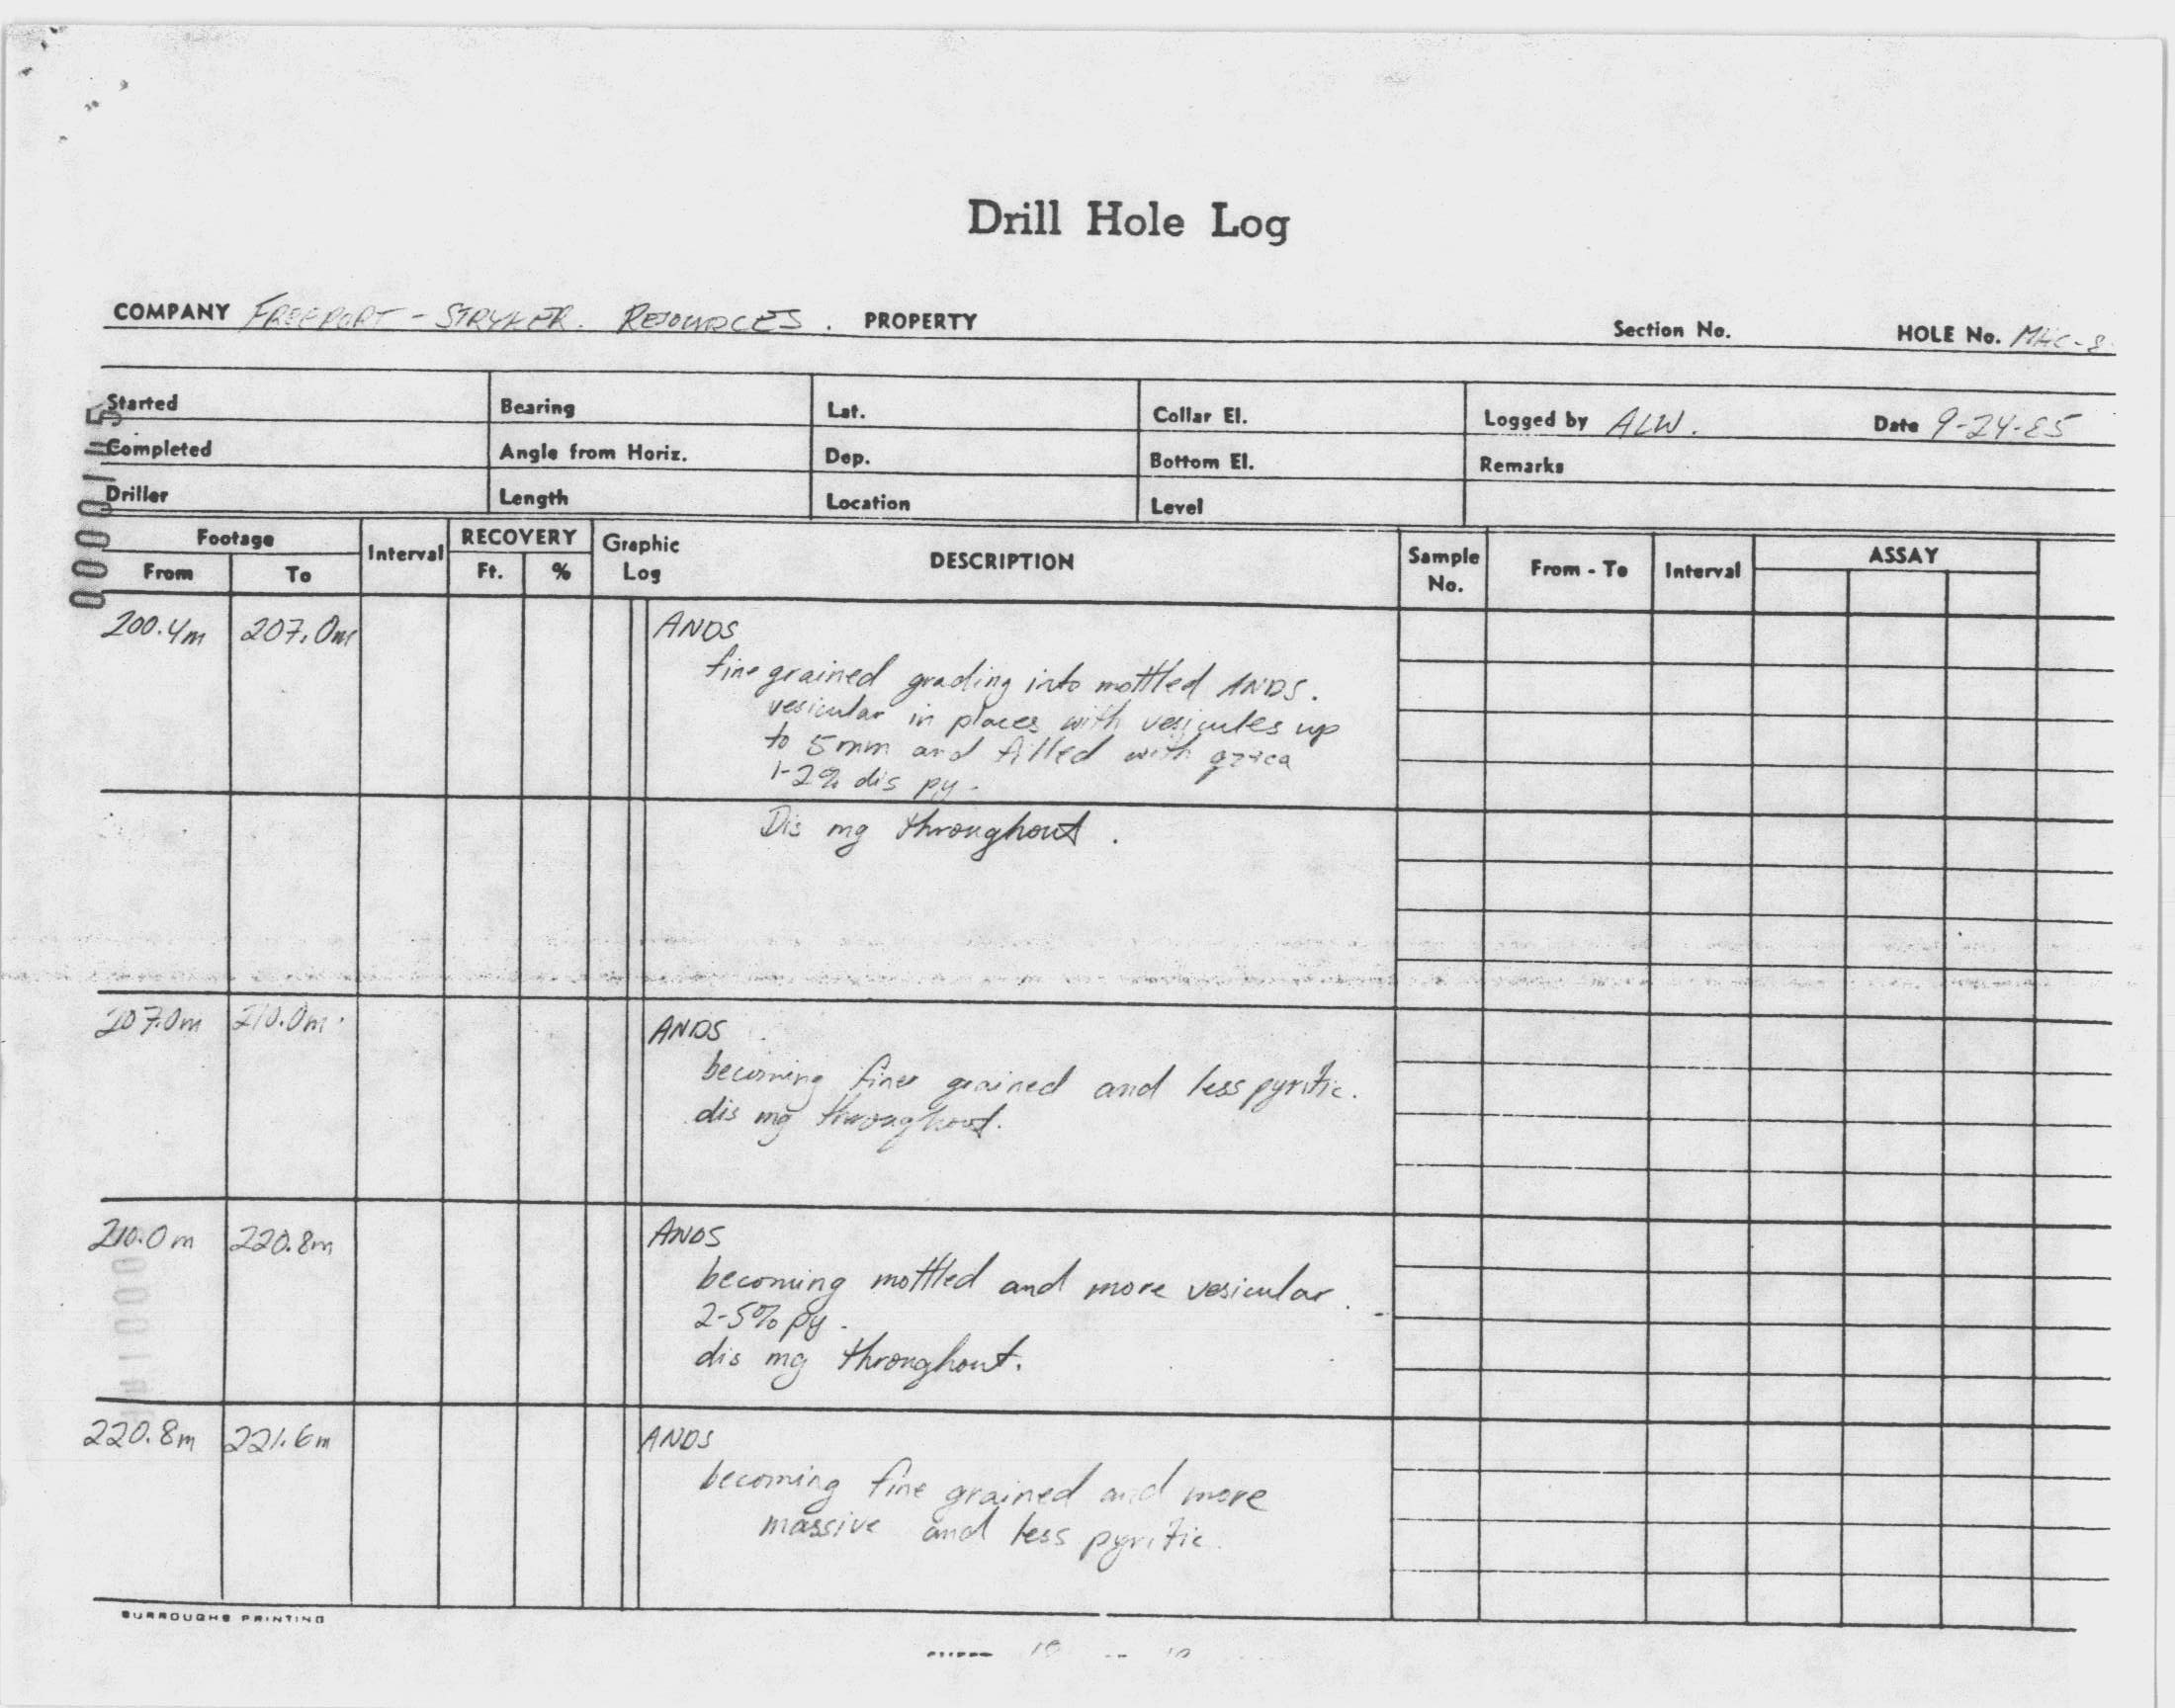 Drill Hole Log
COMPANY FREEPORT - STRYKER RESOURCES. PROPERTY Section No. HOLE No. MHC-8
Started Bearing Lat. Collar El. Logged by ALW. Date 9-24-85
Completed Angle from Horiz. Dep. Bottom El. Remarks
Driller Length Location Level
Footage Interval RECOVERY Graphic Log DESCRIPTION Sample No. From - To Interval ASSAY
From To Ft. %
200.4m 207.0m ANDS
fine grained grading into mottled ANDS.
vesicular in places with vesicules up
to 5mm and filled with
1-2% dis py.
Dis mg throughout.
207.0m 210.0m ANDS
becoming finer grained and less pyritic.
dis mg throughout.
210.0m 220.8m ANDS
becoming mottled and more vesicular.
2-5% py.
dis mg throughout.
220.8m 221.6m ANDS
becoming fine grained and more
massive and less pyritic.
BURROUGHS PRINTING